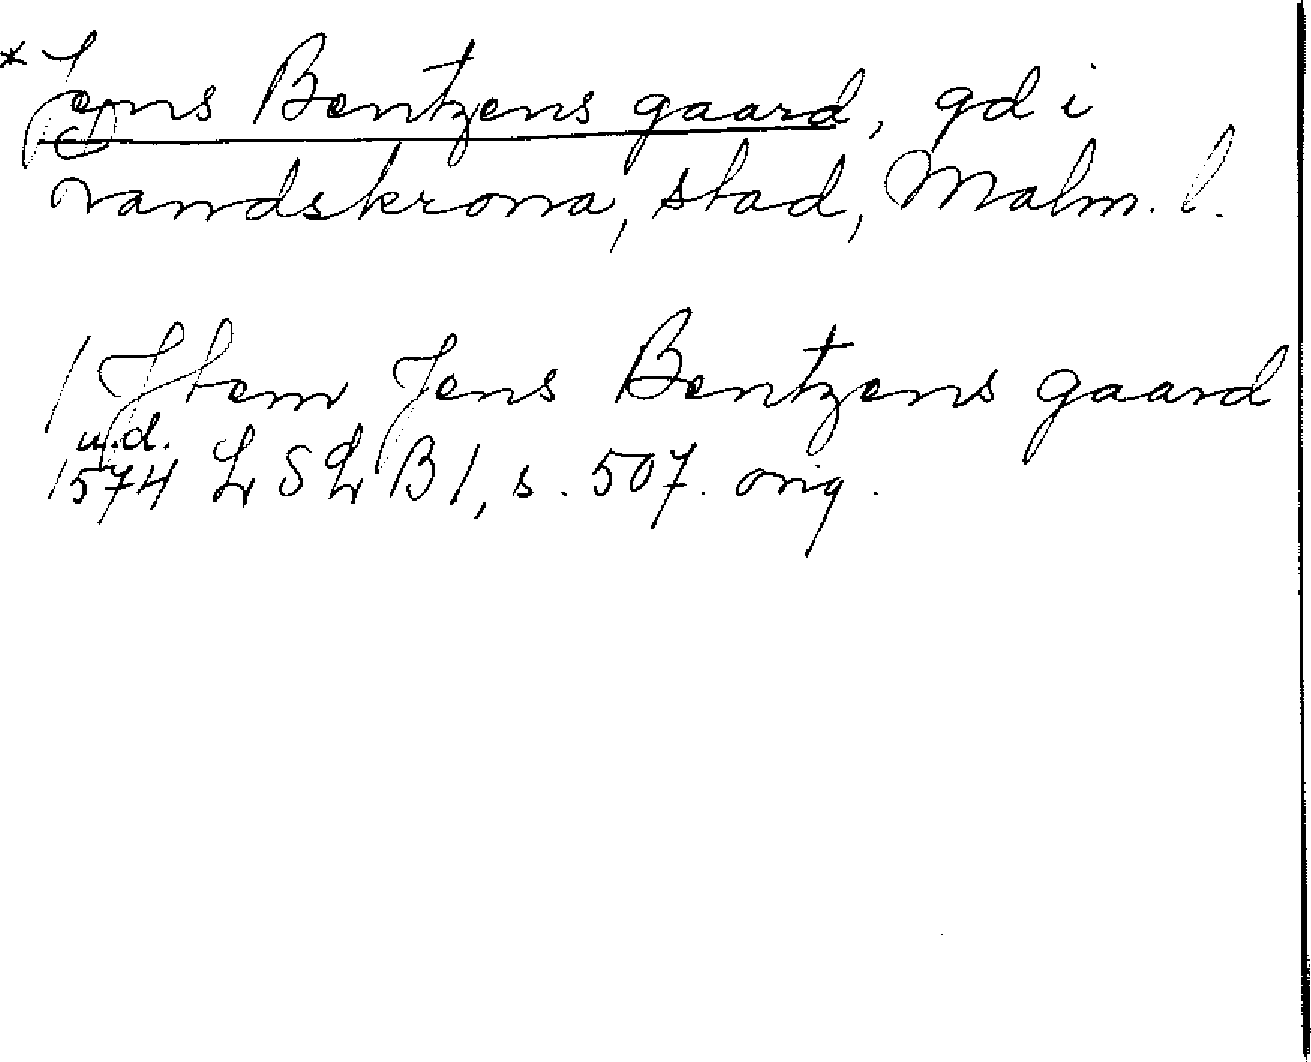 * Jens Bentzens gaard, gd i
Landskrona, stad, Malm. l.
/ Jtem Jens Bentzens gaard
u.d.
1574 LSLB1, s. 507. orig.